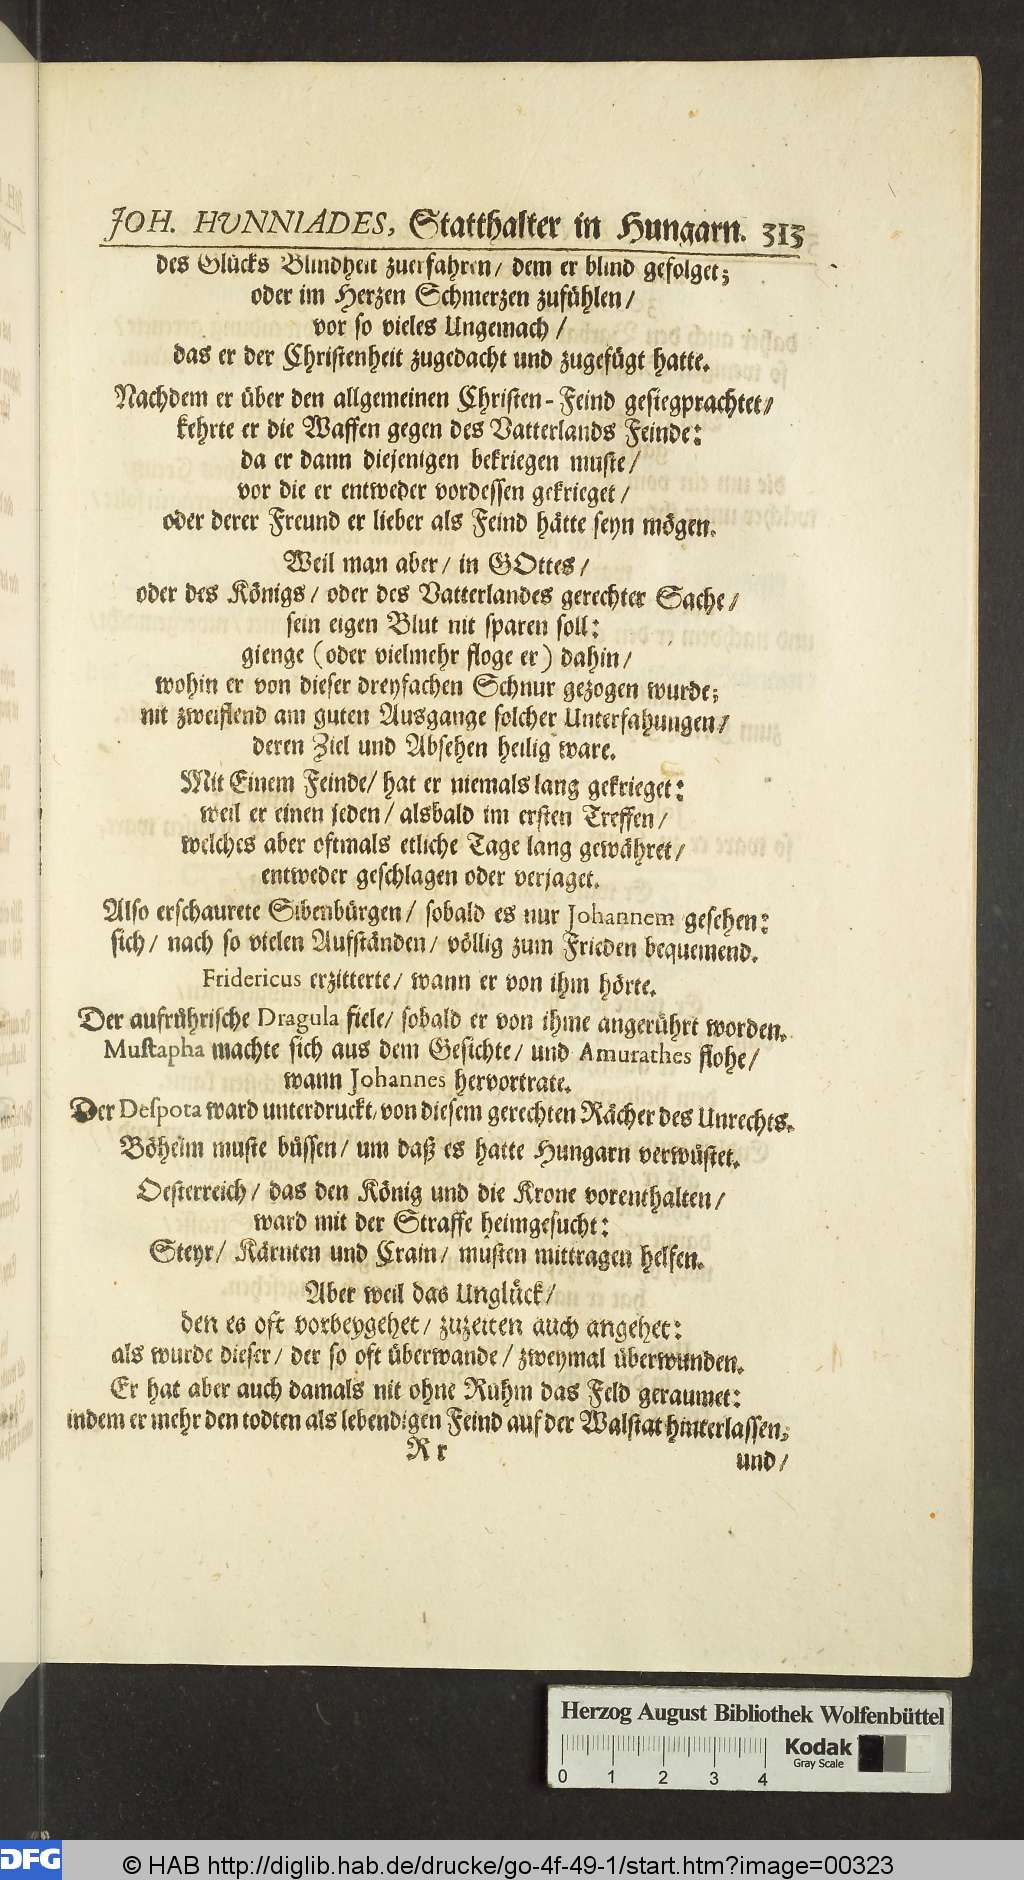 JOH. HUNNIADES, Statthalter in Hungarn. 313
des Glücks Blindheit zuerfahren/ dem er blind gefolget;
oder im Herzen Schmerzen zufühlen/
vor so vieles Ungemach/
das er der Christenheit zugedacht und zugefügt hatte.
Nachdem er über den allgemeinen Christen-Feind gesiegprachtet/
kehrte er die Waffen gegen des Vatterlands Feinde:
da er dann diejenigen bekriegen muste/
vor die er entweder vordessen gekrieget/
oder derer Freund er lieber als Feind hätte seyn mögen.
Weil man aber/ in GOttes/
oder des Königs/ oder des Vatterlandes gerechter Sache/
sein eigen Blut nit sparen soll:
gienge (oder vielmehr floge er) dahin/
wohin er von dieser dreyfachen Schnur gezogen wurde;
nit zweiflend am guten Ausgange solcher Unterfahungen/
deren Ziel und Absehen heilig ware.
Mit Einem Feinde/ hat er niemals lang gekrieget:
weil er einen jeden/ alsbald im ersten Treffen/
welches aber oftmals etliche Tage lang gewähret/
entweder geschlagen oder verjaget.
Also erschaurete Sibenbürgen/ sobald es nur Johannem gesehen:
sich/ nach so vielen Aufständen/ völlig zum Frieden bequemend.
Fridericus erzitterte/ wann er von ihm hörte.
Der aufrührische Dragula fiele/ sobald er von ihme angerührt worden.
Mustapha machte sich aus dem Gesichte/ und Amurathes flohe/
wann Johannes hervortrate.
Der Despota ward unterdruckt/ von diesem gerechten Rächer des Unrechts.
Böheim muste büssen/ um daß es hatte Hungarn verwüstet.
Oesterreich/ das den König und die Krone vorenthalten/
ward mit der Straffe heimgesucht:
Steyr/ Kärnten und Crain/ musten mittragen helfen.
Aber weil das Unglück/
den es oft vorbeygehet/ zuzeiten auch angehet:
als wurde dieser/ der so oft überwande/ zweymal überwunden.
Er hat aber auch damals nit ohne Ruhm das Feld geraumet:
indem er mehr den todten als lebendigen Feind auf der Walstat hinterlassen;
R r
und/
Herzog August Bibliothek Wolfenbüttel
Kodak
Gray Scale
0 1 2 3 4
DFG © HAB http://diglib.hab.de/drucke/go-4f-49-1/start.htm?image=00323